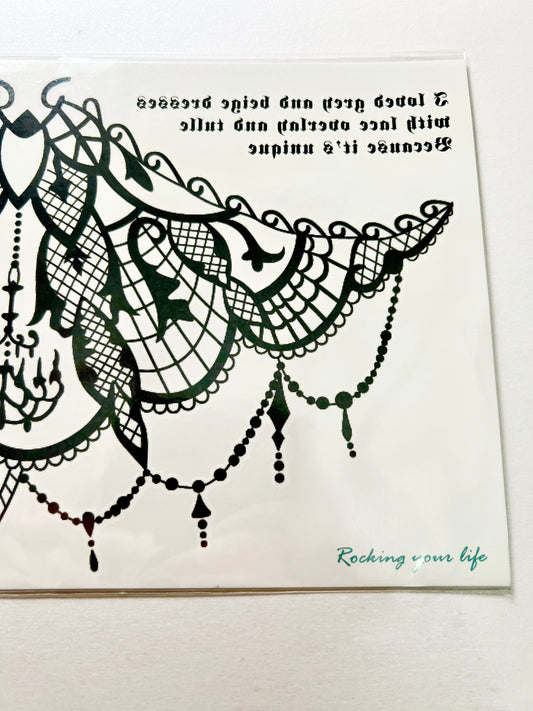 I loved grey and beige dresses
with lace overlay and tulle
Because it's unique
Rocking your life